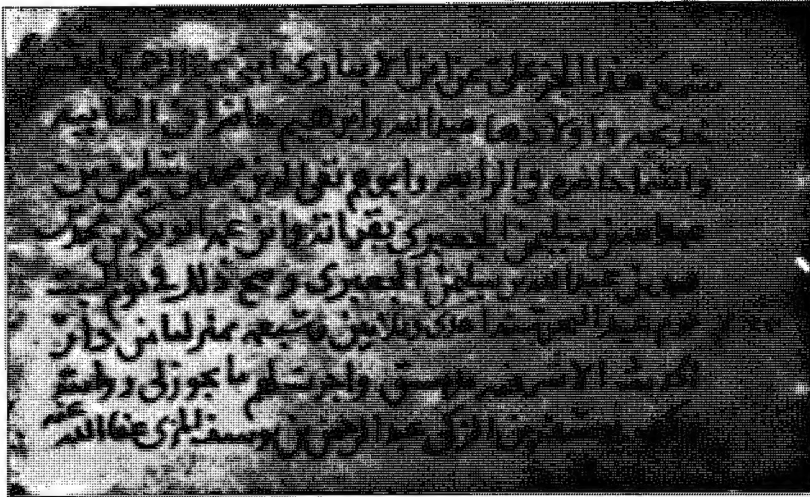 سمع هذا الجزء على عن ابن الانباري ابني عبد الرحمن وابنته
خديجة واولادها عبد الله وابرهيم حاضرا في الثانية
حاضره في الرابعه وابوهم تقي الدين محمد بن سليمن بن
عبد الله بن سليمن الجعبري بقراته وابن عمه ابو بكر بن محمد بن
عبد الله بن سليمن الجعبري وصح ذلك في يوم السبت
يوم عيد وثلاثين وسبعمه بمنزلنا من دار
الحديث الاشرفيه بدمشق واجزت لهم ما يجوز لي روايته
وكتب يوسف بن الزكي عبد الرحمن بن يوسف المزي عفا الله عنه